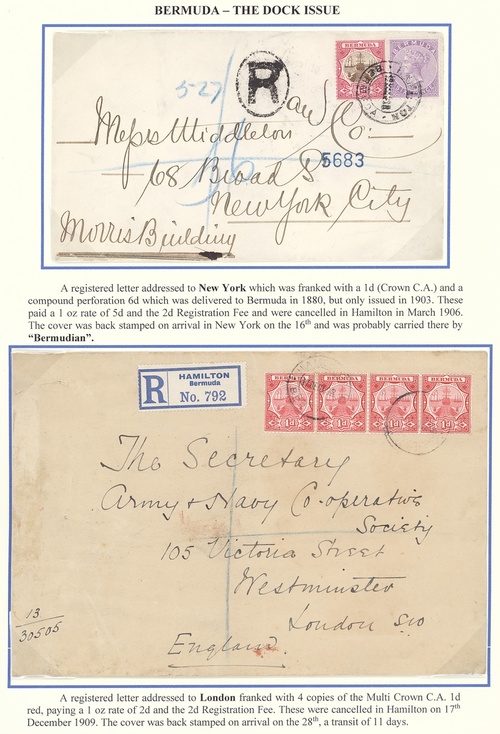 BERMUDA – THE DOCK ISSUE
BERMUDA
BERMUDA
527
R
and Co.
Messrs Middleton
5683
68 Broad St
New York City
Morris Building
A registered letter addressed to New York which was franked with a 1d (Crown C.A.) and a
compound perforation 6d which was delivered to Bermuda in 1880, but only issued in 1903. These
paid a 1 oz rate of 5d and the 2d Registration Fee and were cancelled in Hamilton in March 1906.
The cover was back stamped on arrival in New York on the 16th and was probably carried there by
“Bermudian”.
R
HAMILTON
Bermuda
No. 792
BERMUDA
BERMUDA
BERMUDA
BERMUDA
1d
1d
1d
1d
The Secretary
Army & Navy Co-operative
Society
105 Victoria Street
Westminster
London SW
England.
13
30505
A registered letter addressed to London franked with 4 copies of the Multi Crown C.A. 1d
red, paying a 1 oz rate of 2d and the 2d Registration Fee. These were cancelled in Hamilton on 17th
December 1909. The cover was back stamped on arrival on the 28th, a transit of 11 days.